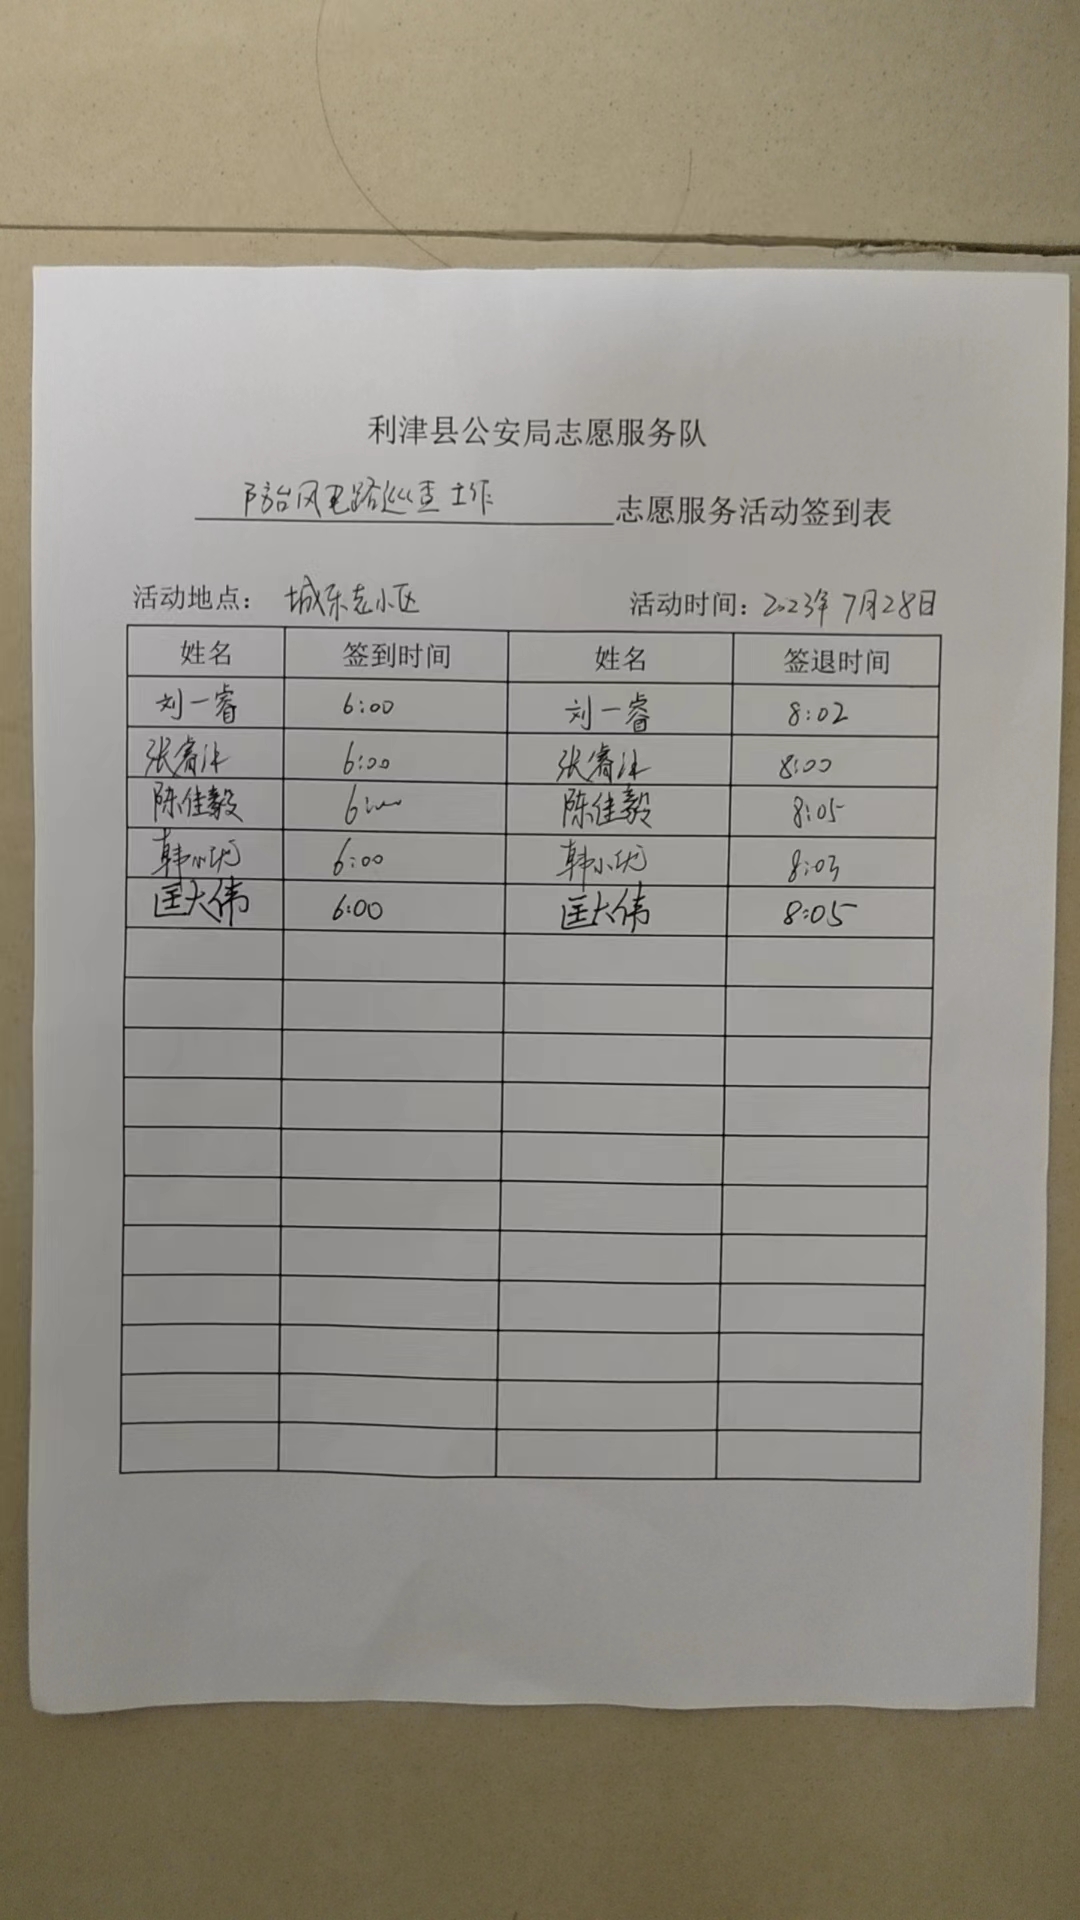 利津县公安局志愿服务队
防台风电路巡查工作 志愿服务活动签到表
活动地点： 城东志小区 活动时间：2023年7月28日
姓名 签到时间 姓名 签退时间
刘一睿 6:00 刘一睿 8:02
张睿 6:00 张睿 8:00
陈佳毅 6:00 陈佳毅 8:05
韩小 6:00 韩小 8:03
匡大伟 6:00 匡大伟 8:05